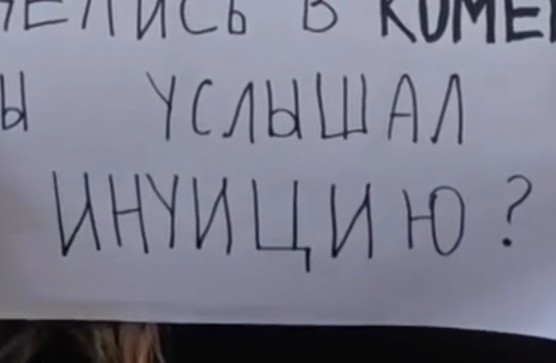 ЕЛИСЬ В КОМЕ
Ы УСЛЫШАЛ
ИНУИЦИЮ?